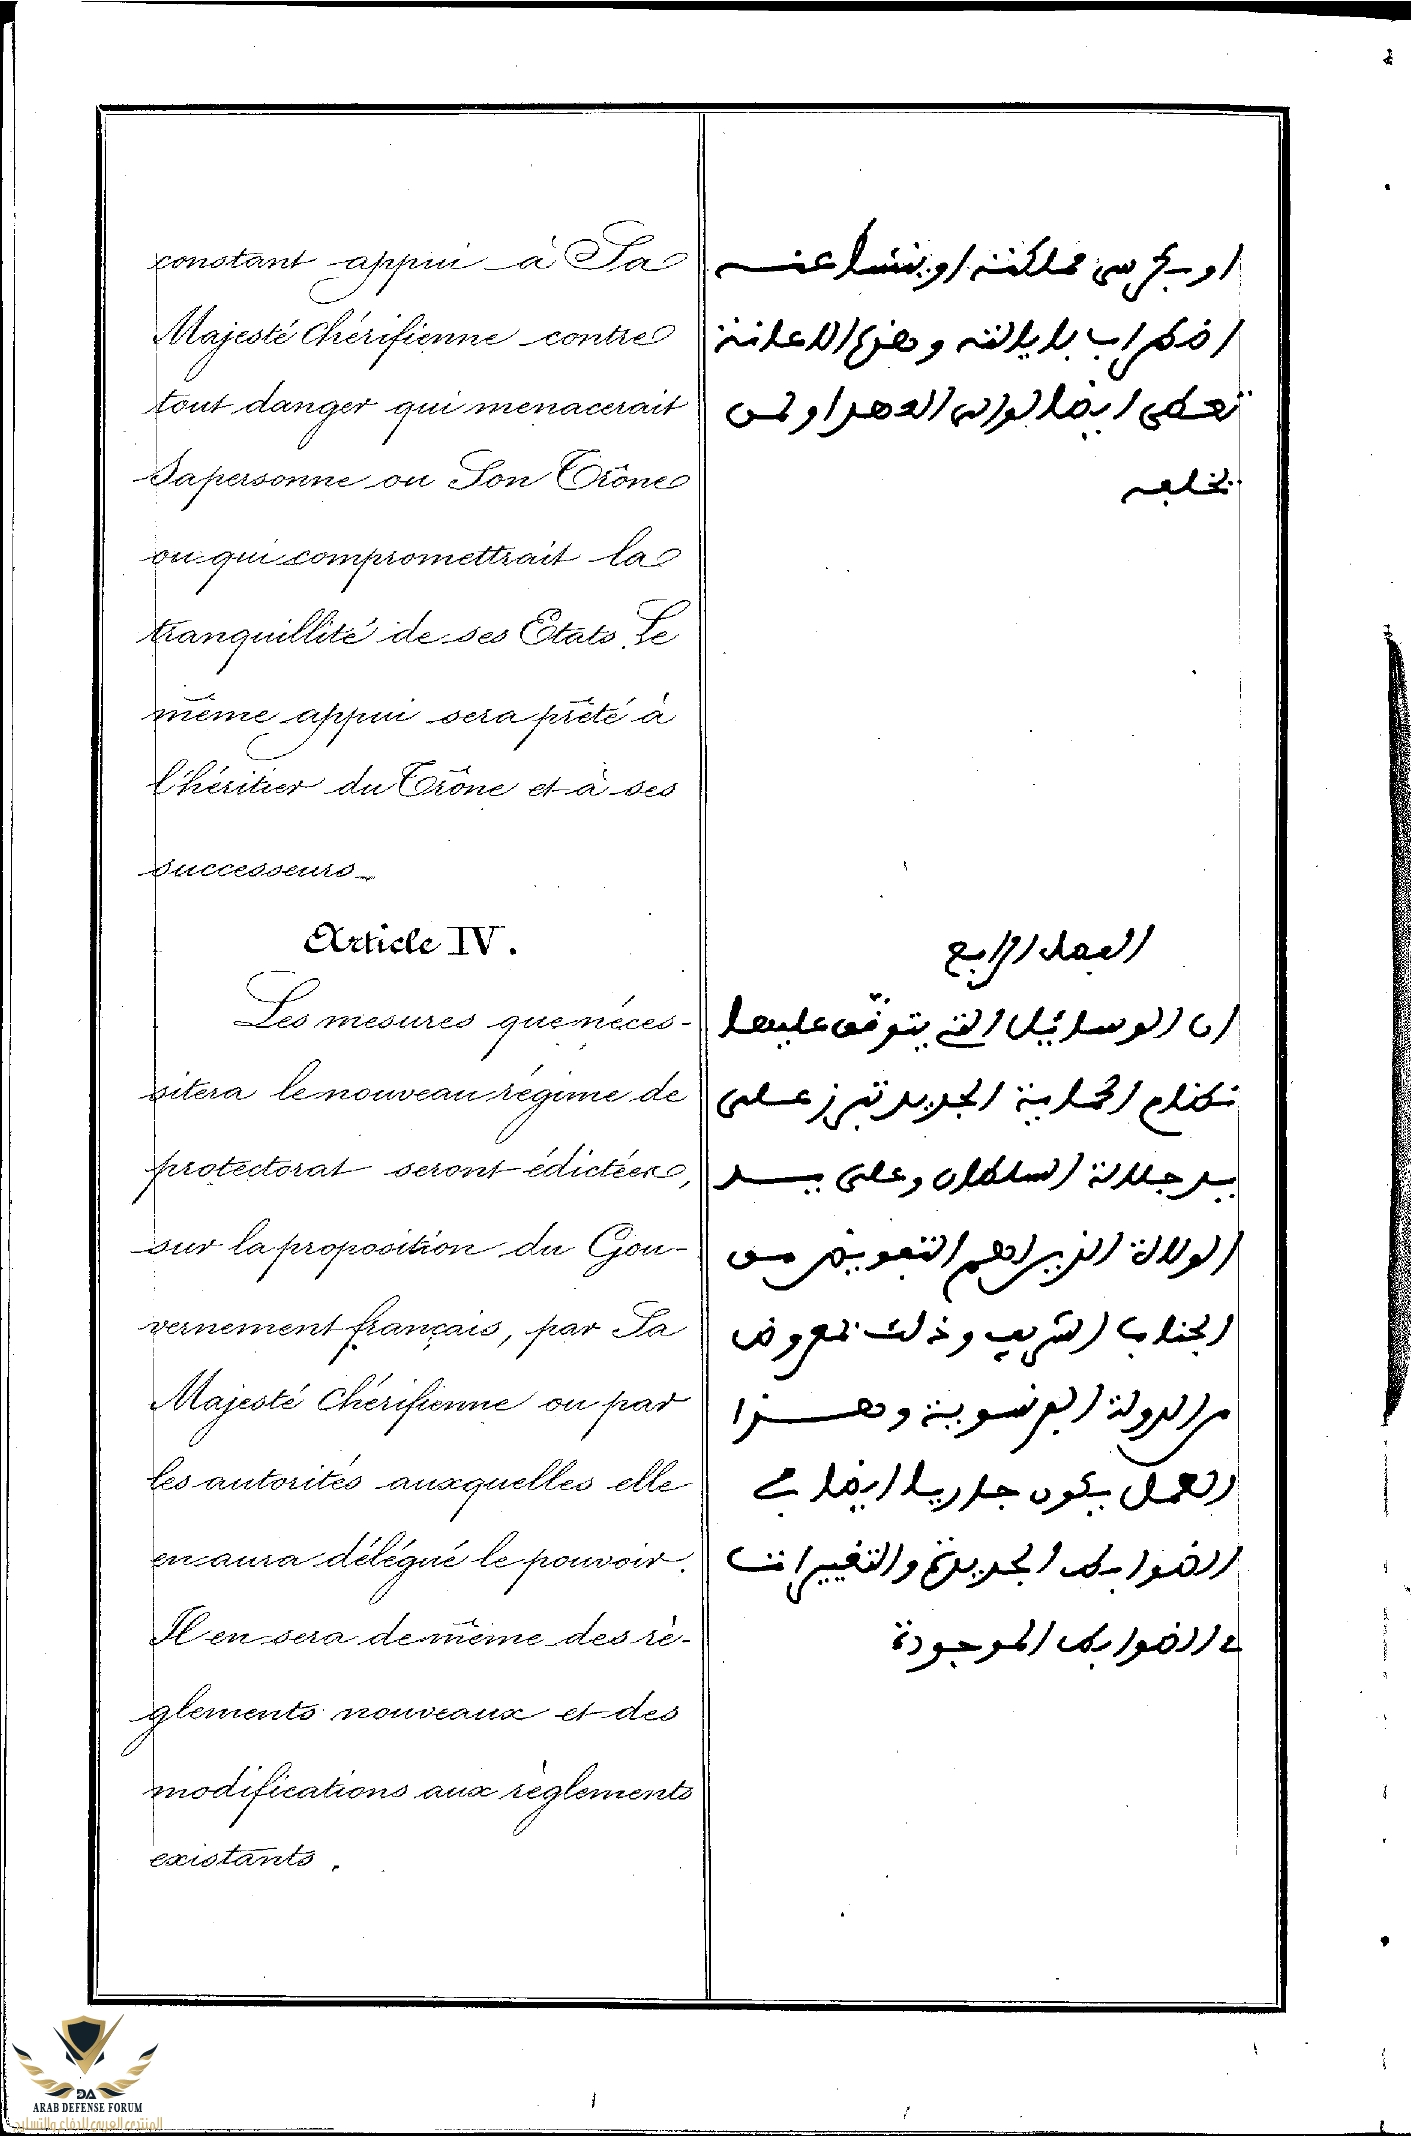 constant appui à Sa
Majesté Chérifienne contre
tout danger qui menacerait
Sa personne ou Son Trône
ou qui compromettrait la
tranquillité de ses Etats. Le
même appui sera prêté à
l'héritier du Trône et à ses
successeurs_
Article IV.
Les mesures que néces-
sitera le nouveau régime de
protectorat seront édictées,
sur la proposition du Gou-
vernement français, par Sa
Majesté Chérifienne ou par
les autorités auxquelles elle
en aura délégué le pouvoir.
Il en sera de même des rè-
glements nouveaux et des
modifications aux règlements
existants.
او بكرسي مملكته او ينشأ عنه
اضطراب بايالته وهذه الاعانة
تعطى ايضا لوالي العهد او لمن
يخلفه
الفصل الرابع
ان الوسائل التي يتوقف عليها
نظام الحماية الجديد تبرز على
يد جلالة السلطان وعلى يد
الولاة الذين لهم التفويض من
الجناب الشريف وذلك بمعروض
من الدولة الفرنسوية وهذا
العمل يكون جاريا ايضا في
الضوابط الجديدة والتغييرات
في الضوابط الموجودة
DA
ARAB DEFENSE FORUM
المنتدى العربي للدفاع والتسليح